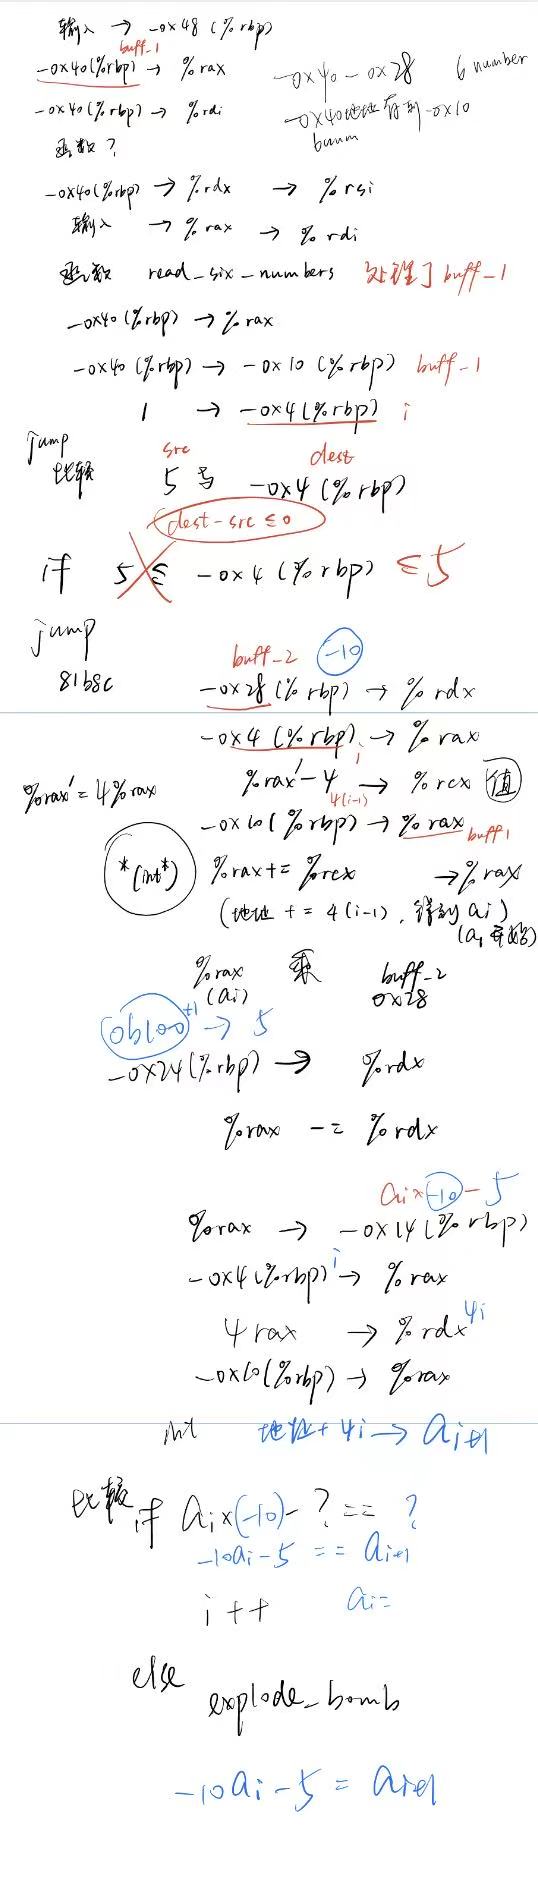 输入 → -0x48 (%rbp)
buff_1
-0x40(%rbp) → %rax
-0x40 - 0x28 6 number
-0x40(%rbp) → %rdi
-0x40地址存到 -0x10
函数?
-0x40(%rbp) → %rdx → %rsi
输入 → %rax → %rdi
函数 read_six_numbers 处理了buff_1
-0x40(%rbp) → %rax
-0x40 (%rbp) → -0x10 (%rbp) buff_1
1 → -0x4(%rbp) i
jump
src dest
比较 5 与 -0x4 (%rbp)
dest-src ≤0
if 5 ≤ -0x4 (%rbp) ≤5
jump
buff_2 -10
81b8c
-0x28(%rbp) → %rdx
-0x4 (%rbp) → %rax
i
%rax' = 4%rax
%rax' - 4 → %rcx 值
4(i-1)
-0x10(%rbp) → %rax buff1
*(int*)
%rax += %rcx → %rax
(地址 += 4(i-1), 得到 ai)
(a1开始)
%rax 乘 buff_2
(ai) 0x28
0b100 +1 → 5
-0x24(%rbp) → %rdx
%rax -= %rdx
ai×-10-5
%rax → -0x14(%rbp)
-0x4(%rbp) i → %rax
4rax → %rdx 4i
-0x10(%rbp) → %rax
int 地址+4i → ai+1
比较 if ai×(-10)-? == ?
-10ai-5 == ai+1
i++ ai=
else
explode_bomb
-10ai-5 = ai+1